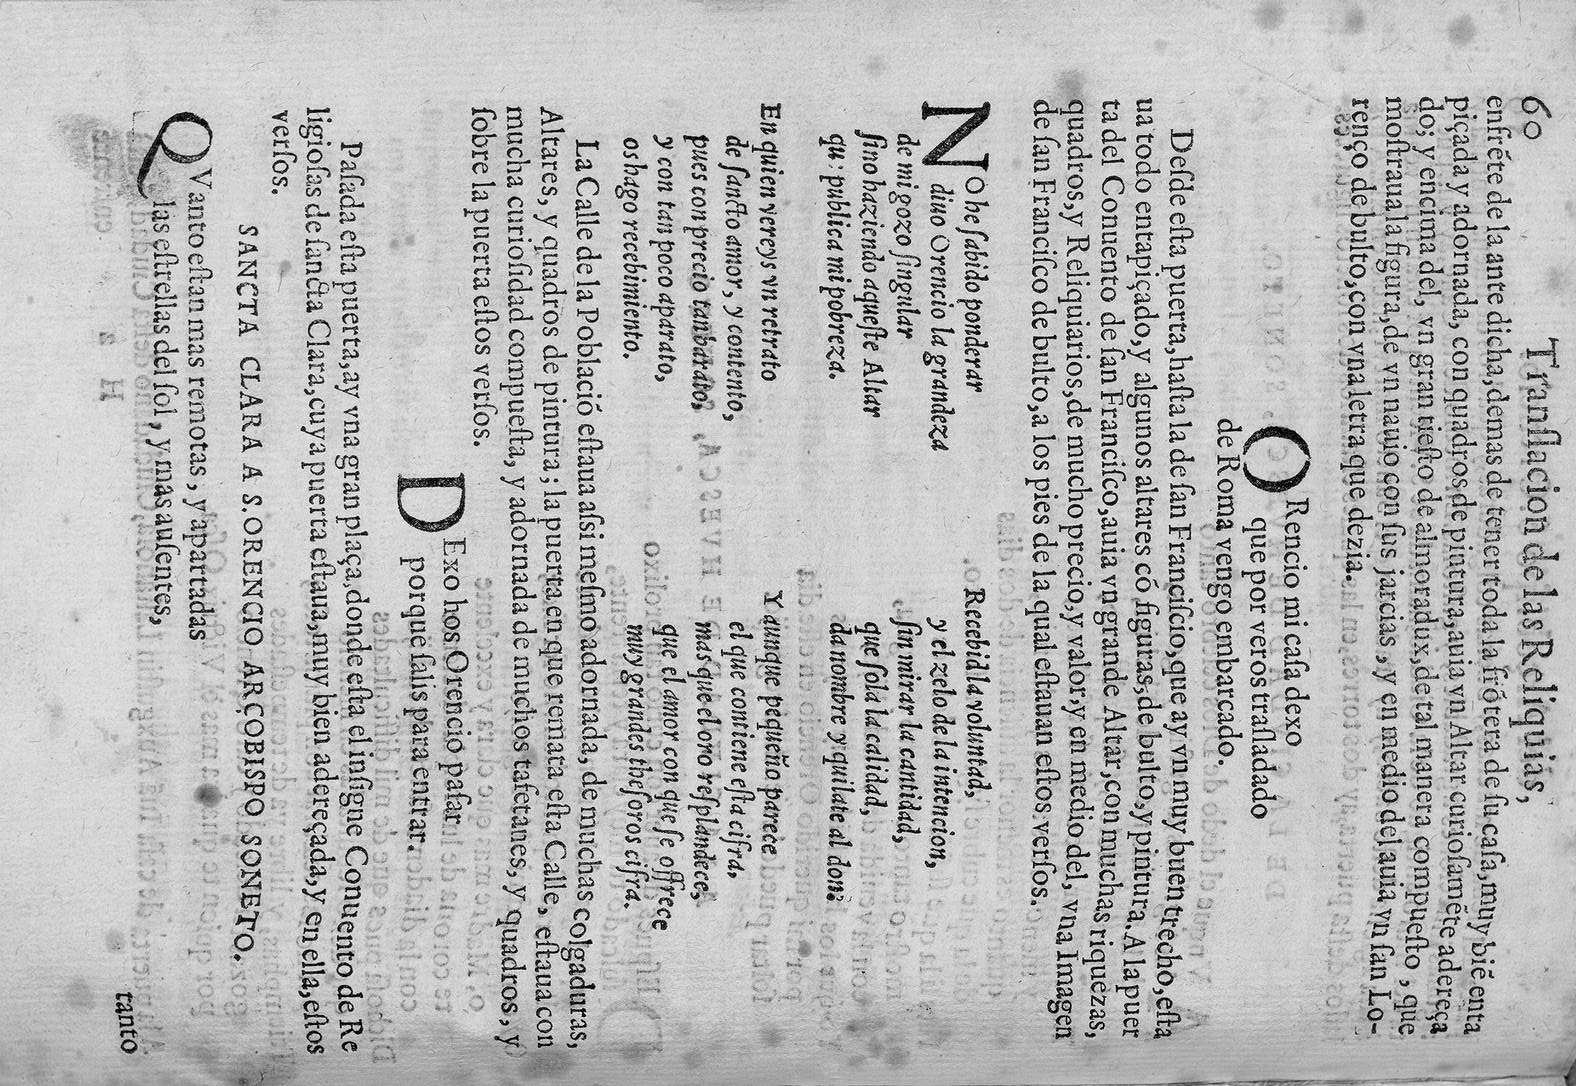 60 Tranſlacion de las Reliquias,
enfrẽte de la ante dicha, demas de tener toda la frõtera de ſu caſa, muy biẽ enta
piçada y adornada, con quadros de pintura, auia vn Altar curioſamẽte adereça
do; y encima del, vn gran tieſto de almoradux, de tal manera compueſto, que
moſtraua la figura, de vn nauio con ſus jarcias, y en medio del auia vn ſan Lo-
renço de bulto, con vna letra que dezia.
ORencio mi caſa dexo
que por veros traſladado
de Roma vengo embarcado.
Deſde eſta puerta, haſta la de ſan Franciſcio, que ay vn muy buen trecho, eſta
ua todo entapiçado, y algunos altares cõ figuras, de bulto, y pintura. A la puer
ta del Conuento de ſan Franciſco, auia vn grande Altar, con muchas riquezas,
quadros, y Reliquiarios, de mucho precio, y valor, y en medio del, vna Imagen
de ſan Franciſco de bulto, a los pies de la qual eſtauan eſtos verſos.
NO he ſabido ponderar
diuo Orencio la grandeza
de mi gozo ſingular
ſino haziendo aqueſte Altar
qu: publica mi pobreza.
En quien vereys vn retrato
de ſancto amor, y contento,
pues con precio tan barato,
y con tan poco aparato,
os hago recebimiento.
Recebid la voluntad,
y el zelo de la intencion,
ſin mirar la cantidad,
que ſola la calidad,
da nombre y quilate al don:
Y aunque pequeño parece
el que contiene eſta cifra,
mas que el oro reſplandece,
que el amor con que ſe offrece
muy grandes theſoros cifra.
La Calle de la Població eſtaua aſsi meſmo adornada, de muchas colgaduras,
Altares, y quadros de pintura; la puerta en que remata eſta Calle, eſtaua con
mucha curioſidad compueſta, y adornada de muchos tafetanes, y quadros, y
ſobre la puerta eſtos verſos.
DExo hos Orencio paſar
porque ſalis para entrar.
Paſada eſta puerta, ay vna gran plaça, donde eſta el inſigne Conuento de Re
ligioſas de ſancta Clara, cuya puerta eſtaua, muy bien adereçada, y en ella, eſtos
verſos.
SANCTA CLARA A S. ORENCIO ARÇOBISPO SONETO.
QVanto eſtan mas remotas, y apartadas
las eſtrellas del ſol, y mas auſentes,
tanto